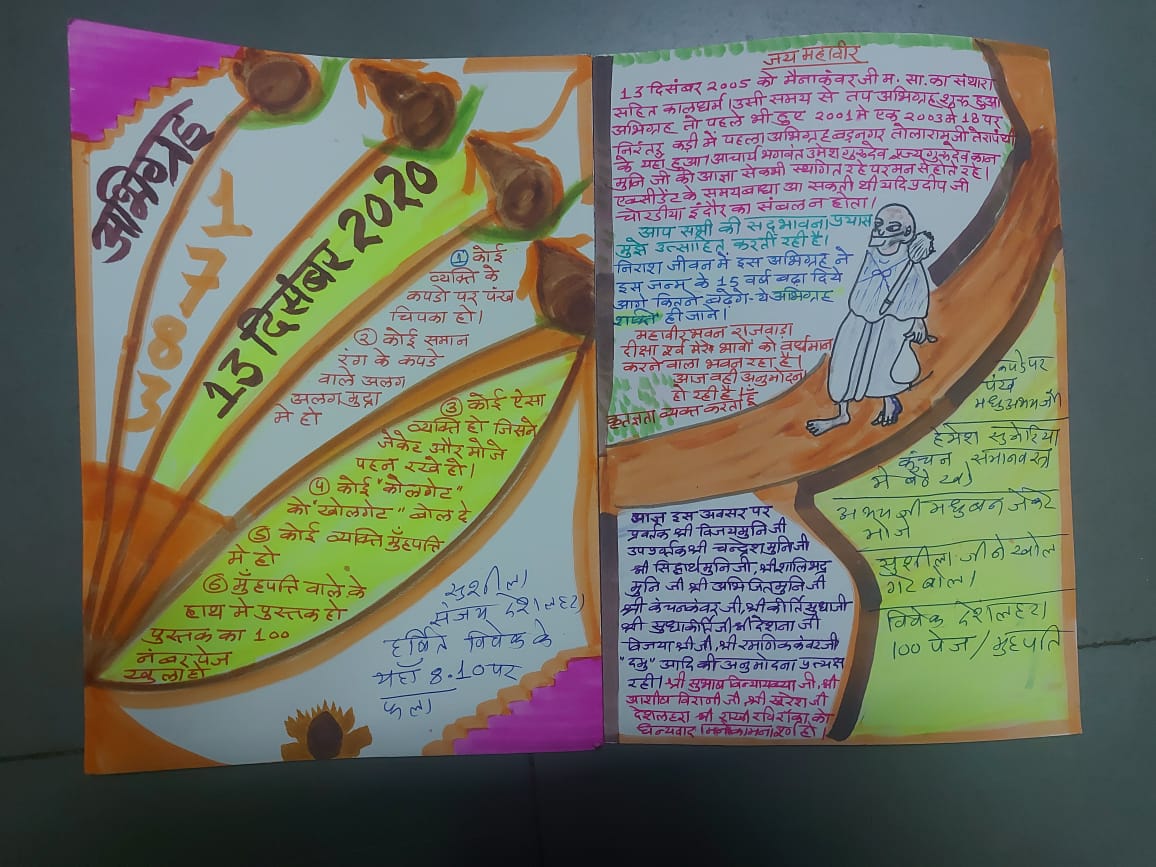 अभिग्रह
13 दिसंबर 2020
① कोई
व्यक्ति के
कपडे पर पंख
चिपका हो।
② कोई समान
रंग के कपडे
वाले अलग
अलग मुद्रा
मे हो
③ कोई ऐसा
व्यक्ति हो जिसने
जेकेट और मोजे
पहन रखे हो।
④ कोई "कोलगेट"
को "खोलगेट" बोल दे
⑤ कोई व्यक्ति मुँहपत्ति
मे हो
⑥ मुँहपत्ति वाले के
हाथ मे पुस्तक हो
पुस्तक का 100
नंबर पेज
खुला हो
सुशीला
संजय देशलहरा
हर्षित विवेक के
यहाँ 8.10 पर
फला
जय महावीर
13 दिसंबर 2005 को मैनाकंवर जी म. सा. का संथारा
सहित कालधर्म। उसी समय से तप अभिग्रह शुरू हुआ
अभिग्रह तो पहले भी हुए 2001 मे एक 2003 मे 18 पर
निरंतर कड़ी में पहला अभिग्रह बड़नगर तोलारामजी तेरापंथी
के यहां हुआ। आचार्य भगवंत उमेश गुरूदेव पूज्य गुरूदेव कान
मुनि जी की आज्ञा से कभी स्थगित रहे पर मन से होते रहे।
एक्सीडेंट के समय बाधा आ सकती थी यदि प्रदीप जी
चोरडीया इंदौर का संबल न होता।
आप सभी की सद्भावना प्रयास
मुझे उत्साहित करती रही है।
निराश जीवन में इस अभिग्रह ने
इस जन्म के 15 वर्ष बढ़ा दिये
आगे कितने बढेंगे- ये अभिग्रह
शक्ति ही जाने।
महावीर भवन राजवाडा
दीक्षा पूर्व मेरे भावों को वर्धमान
करने वाला भवन रहा है।
आज वही अनुमोदना
हो रही है। हूँ
कृतज्ञता व्यक्त करता
आज इस अवसर पर
प्रवर्तक श्री विजयमुनि जी
उपप्रवर्तक श्री चन्द्रेश मुनि जी
श्री सिद्धार्थ मुनि जी, श्री शालिभद्र
मुनि जी श्री अभिजित मुनि जी
श्री कंचनकंवर जी, श्री कीर्तिसुधाजी
श्री सुधाकीर्ति जी श्री देशना जी
विजया श्री जी, श्री रमणिककंवरजी
"दमु" आदि की अनुमोदना प्रत्यक्ष
रही। श्री सुभाष विनायक्या जी, श्री
आशीष विरानी जी, श्री सुरेश जी
देशलहरा श्री राखी रवि रांका को
धन्यवाद। मनोकामना पूर्ण हो।
कपडे पर
पंख
मधु अभय जी।
हेमेश सुनेरिया
कंचन समान वस्त्र
मे बैठे
अभय जी मधुबन जेकेट
मोजे
सुशीला जी ने खोल
गेट बोला।
विवेक देशलहरा
100 पेज / मुंहपत्ति